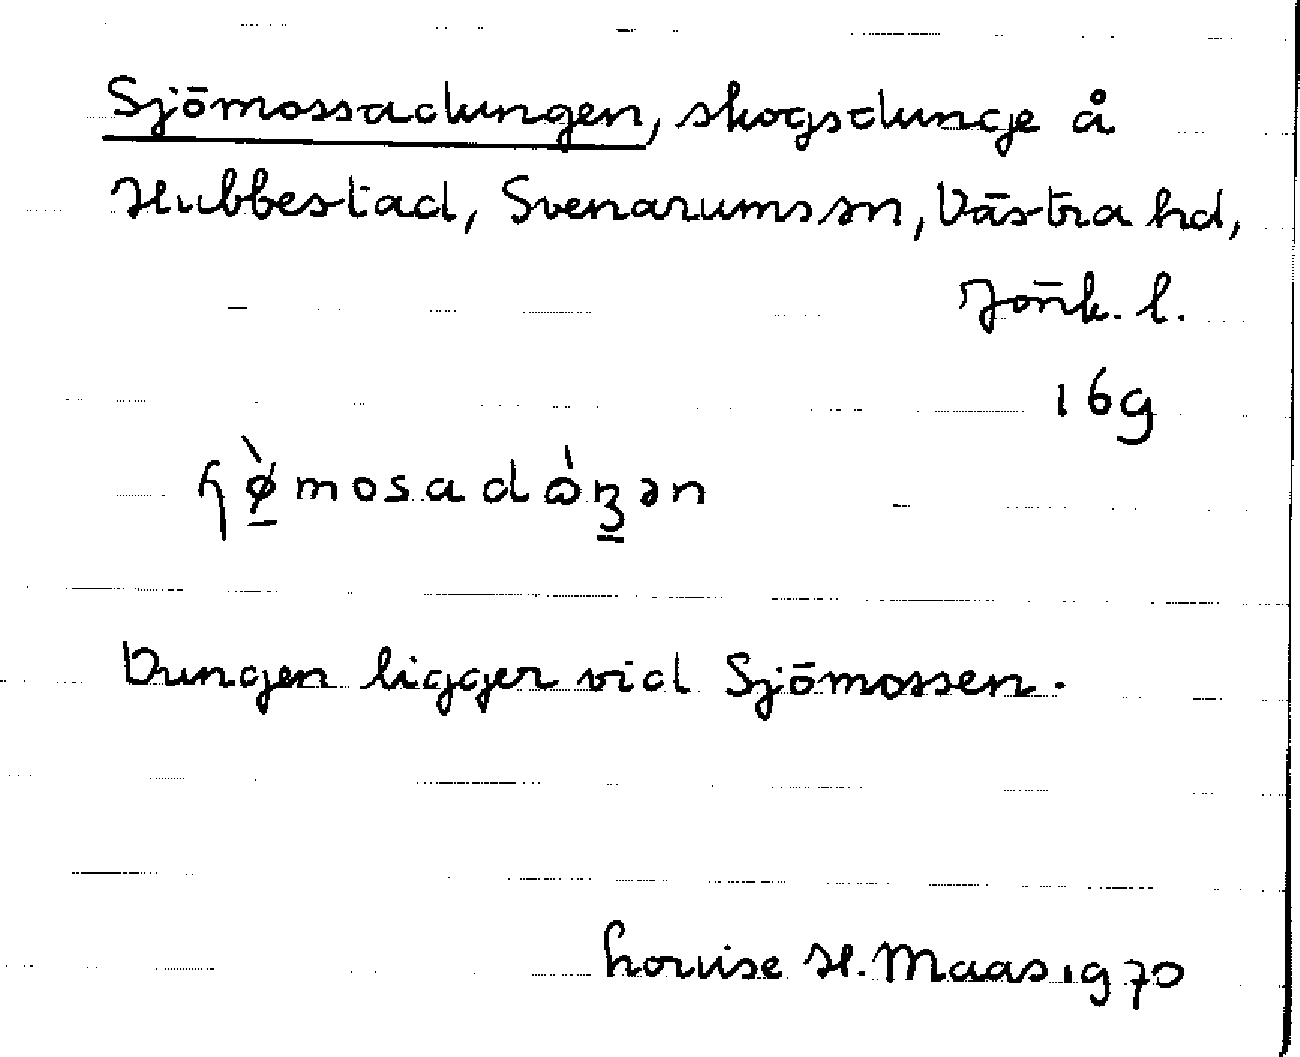 Sjömossadungen, skogsdunge å
Hubbestad, Svenarums sn, Västra hd,
Jönk. l.
16g
ɧø̀mosadὼŋən
Dungen ligger vid Sjömossen.
Louise H. Maas 1970